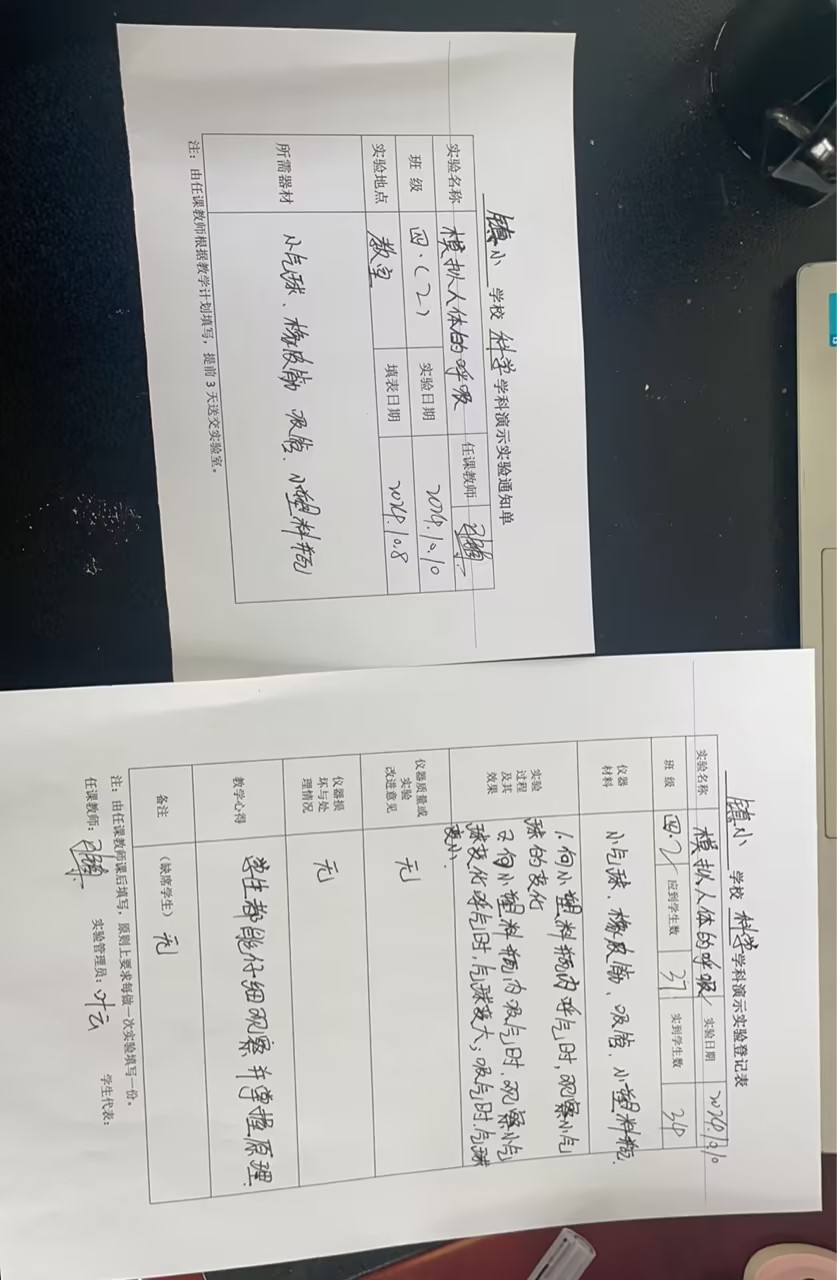 镇小 学校 科学 学科演示实验通知单
实验名称 模拟人体的呼吸 任课教师
班 级 四.(2) 实验日期 2024.10.10
实验地点 教室 填表日期 2024.10.8
所需器材 小气球、橡皮筋 吸管、小塑料瓶
注：由任课教师根据教学计划填写，提前 3 天送交实验室。
镇小 学校 科学 学科演示实验登记表
实验名称 模拟人体的呼吸 实验日期 2024.10.10
班 级 四.2 应到学生数 37 实到学生数
仪器
材料
小气球、橡皮筋、吸管、小塑料瓶.
实验
过程
及其
效果
1.向小塑料瓶内呼气时,观察小气
球的变化
2.向小塑料瓶内吸气时.观察小气
球变化呼气时,气球变大;吸气时.气球
变小.
仪器质量或
实验
改进意见
无
仪器损
坏与处
理情况
无
教学心得 学生都能仔细观察并掌握原理.
备注 （缺席学生）无
注：由任课教师课后填写，原则上要求每做一次实验填写一份。
任课教师： 实验管理员：叶云 学生代表：